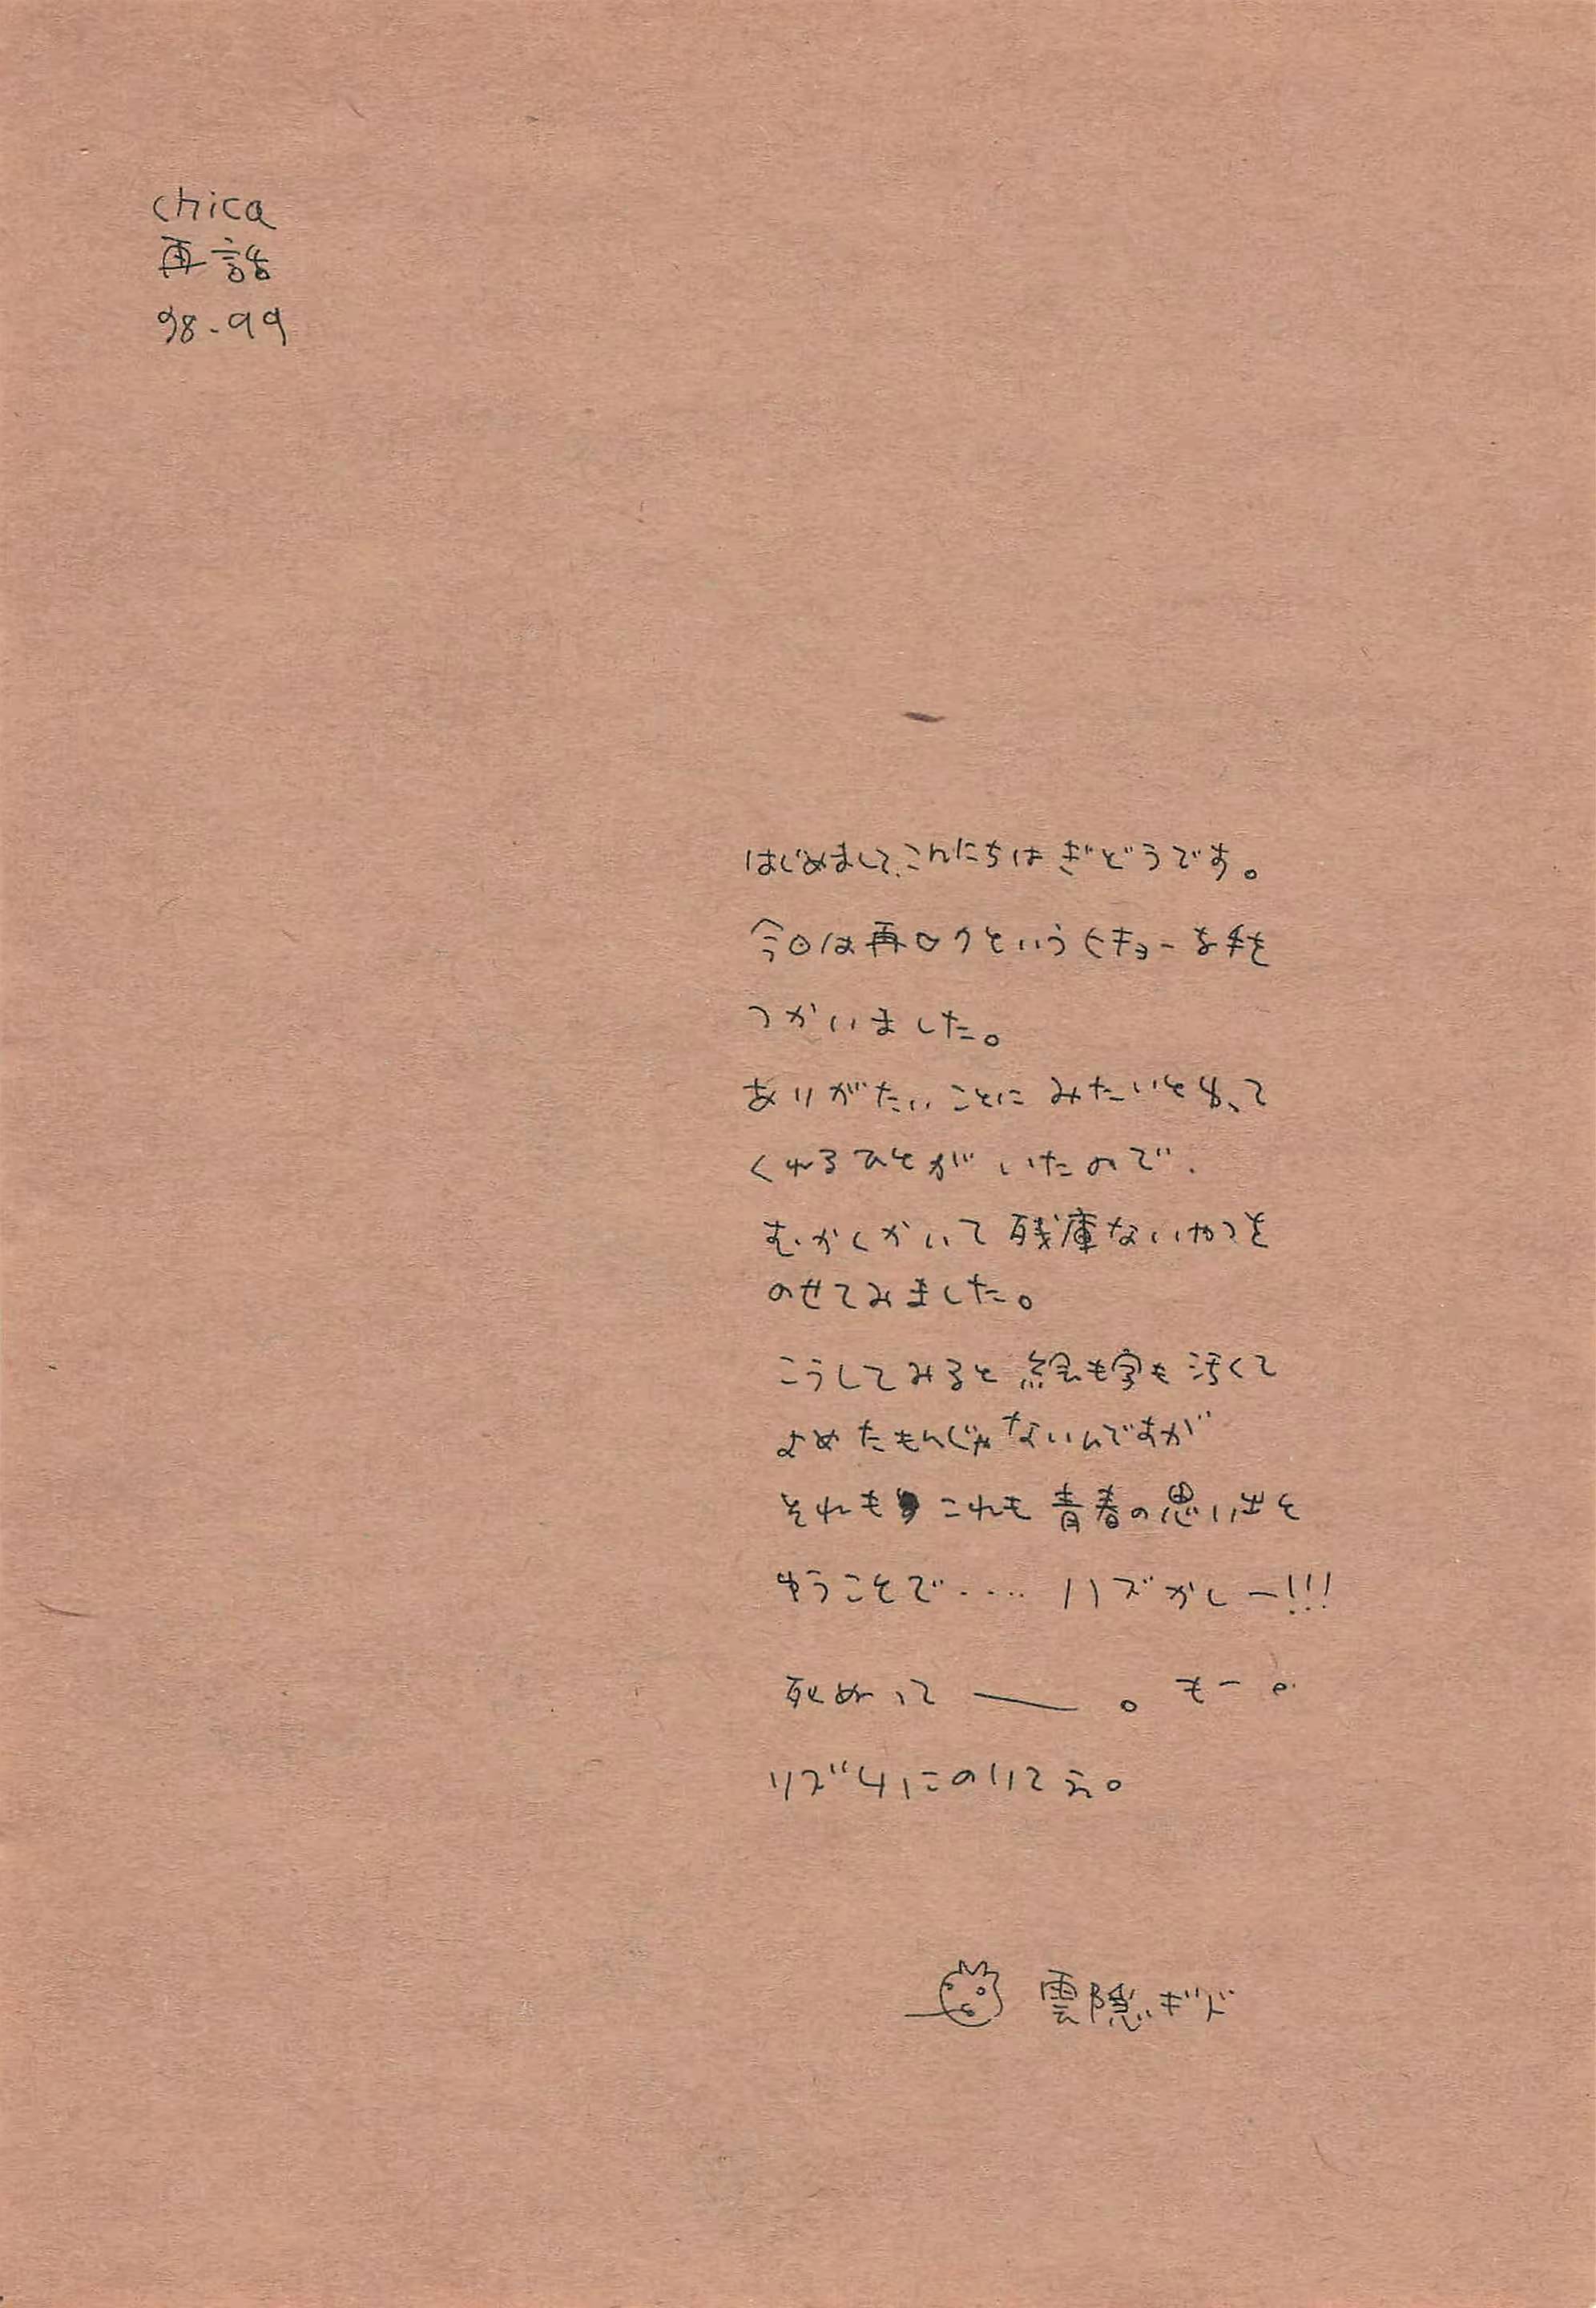 chica
再録
98-99
はじめまして、こんにちは ぎどうです。
今回は再ロクという ヒキョーな手を
つかいました。
ありがたいことに みたいと思って
くれるひとが いたので、
むかしかいて 残庫ないやつを
のせてみました。
こうしてみると 絵も字も 汚くて
よめたもんじゃないんですが
それも これも 青春の思い出と
ゆうことで‥‥ ハズかしー!!!
死ぬって ー 。 もー 。
リズムにのりてえ。
雲隠ギド